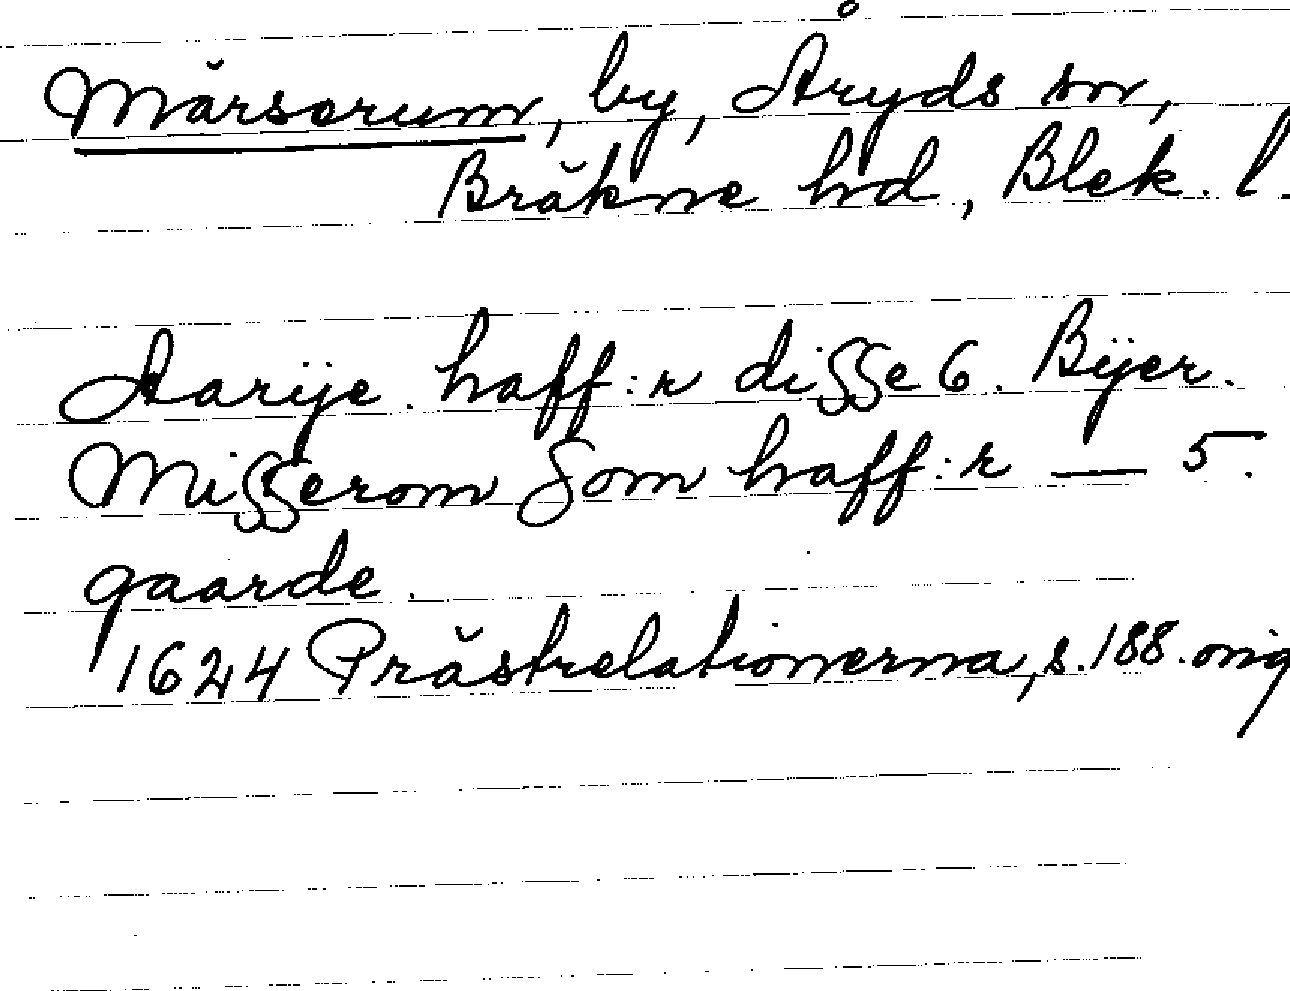 Märserum, by, Åryds sn,
Bräkne hd, Blek. l.
Aarÿe. haff:r disse 6. Bÿer.
Misserom som haff:r — 5.
gaarde.
1624 Prästrelationerna, s. 188. orig